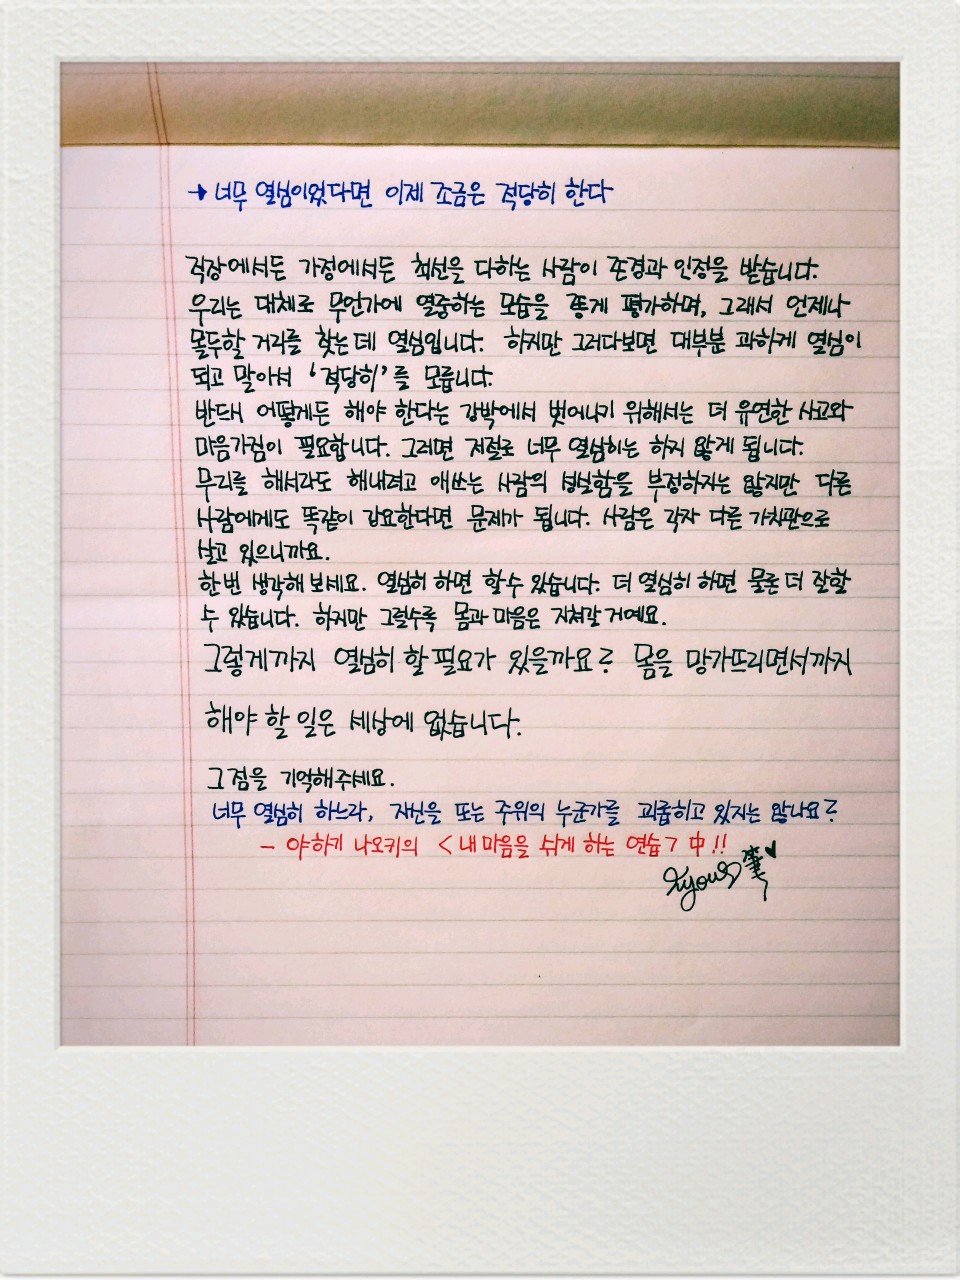 → 너무 열심이었다면 이제 조금은 적당히 한다
직장에서든 가정에서든 최선을 다하는 사람이 존경과 인정을 받습니다.
우리는 대체로 무언가에 열중하는 모습을 좋게 평가하며, 그래서 언제나
몰두할 거리를 찾는데 열심입니다. 하지만 그러다보면 대부분 과하게 열심이
되고 말아서 '적당히'를 모릅니다.
반드시 어떻게든 해야 한다는 강박에서 벗어나기 위해서는 더 유연한 사고와
마음가짐이 필요합니다. 그러면 저절로 너무 열심히는 하지 않게 됩니다.
무리를 해서라도 해내려고 애쓰는 사람의 성실함을 부정하지는 않지만 다른
사람에게도 똑같이 강요한다면 문제가 됩니다. 사람은 각자 다른 가치관으로
살고 있으니까요.
한번 생각해 보세요. 열심히 하면 할수 있습니다. 더 열심히 하면 물론 더 잘할
수 있습니다. 하지만 그럴수록 몸과 마음은 지쳐갈 거예요.
그렇게까지 열심히 할 필요가 있을까요? 몸을 망가뜨리면서까지
해야 할 일은 세상에 없습니다.
그 점을 기억해주세요.
너무 열심히 하느라, 자신을 또는 주위의 누군가를 괴롭히고 있지는 않나요?
- 야하기 나오키의 <내 마음을 쉬게 하는 연습> 中!!